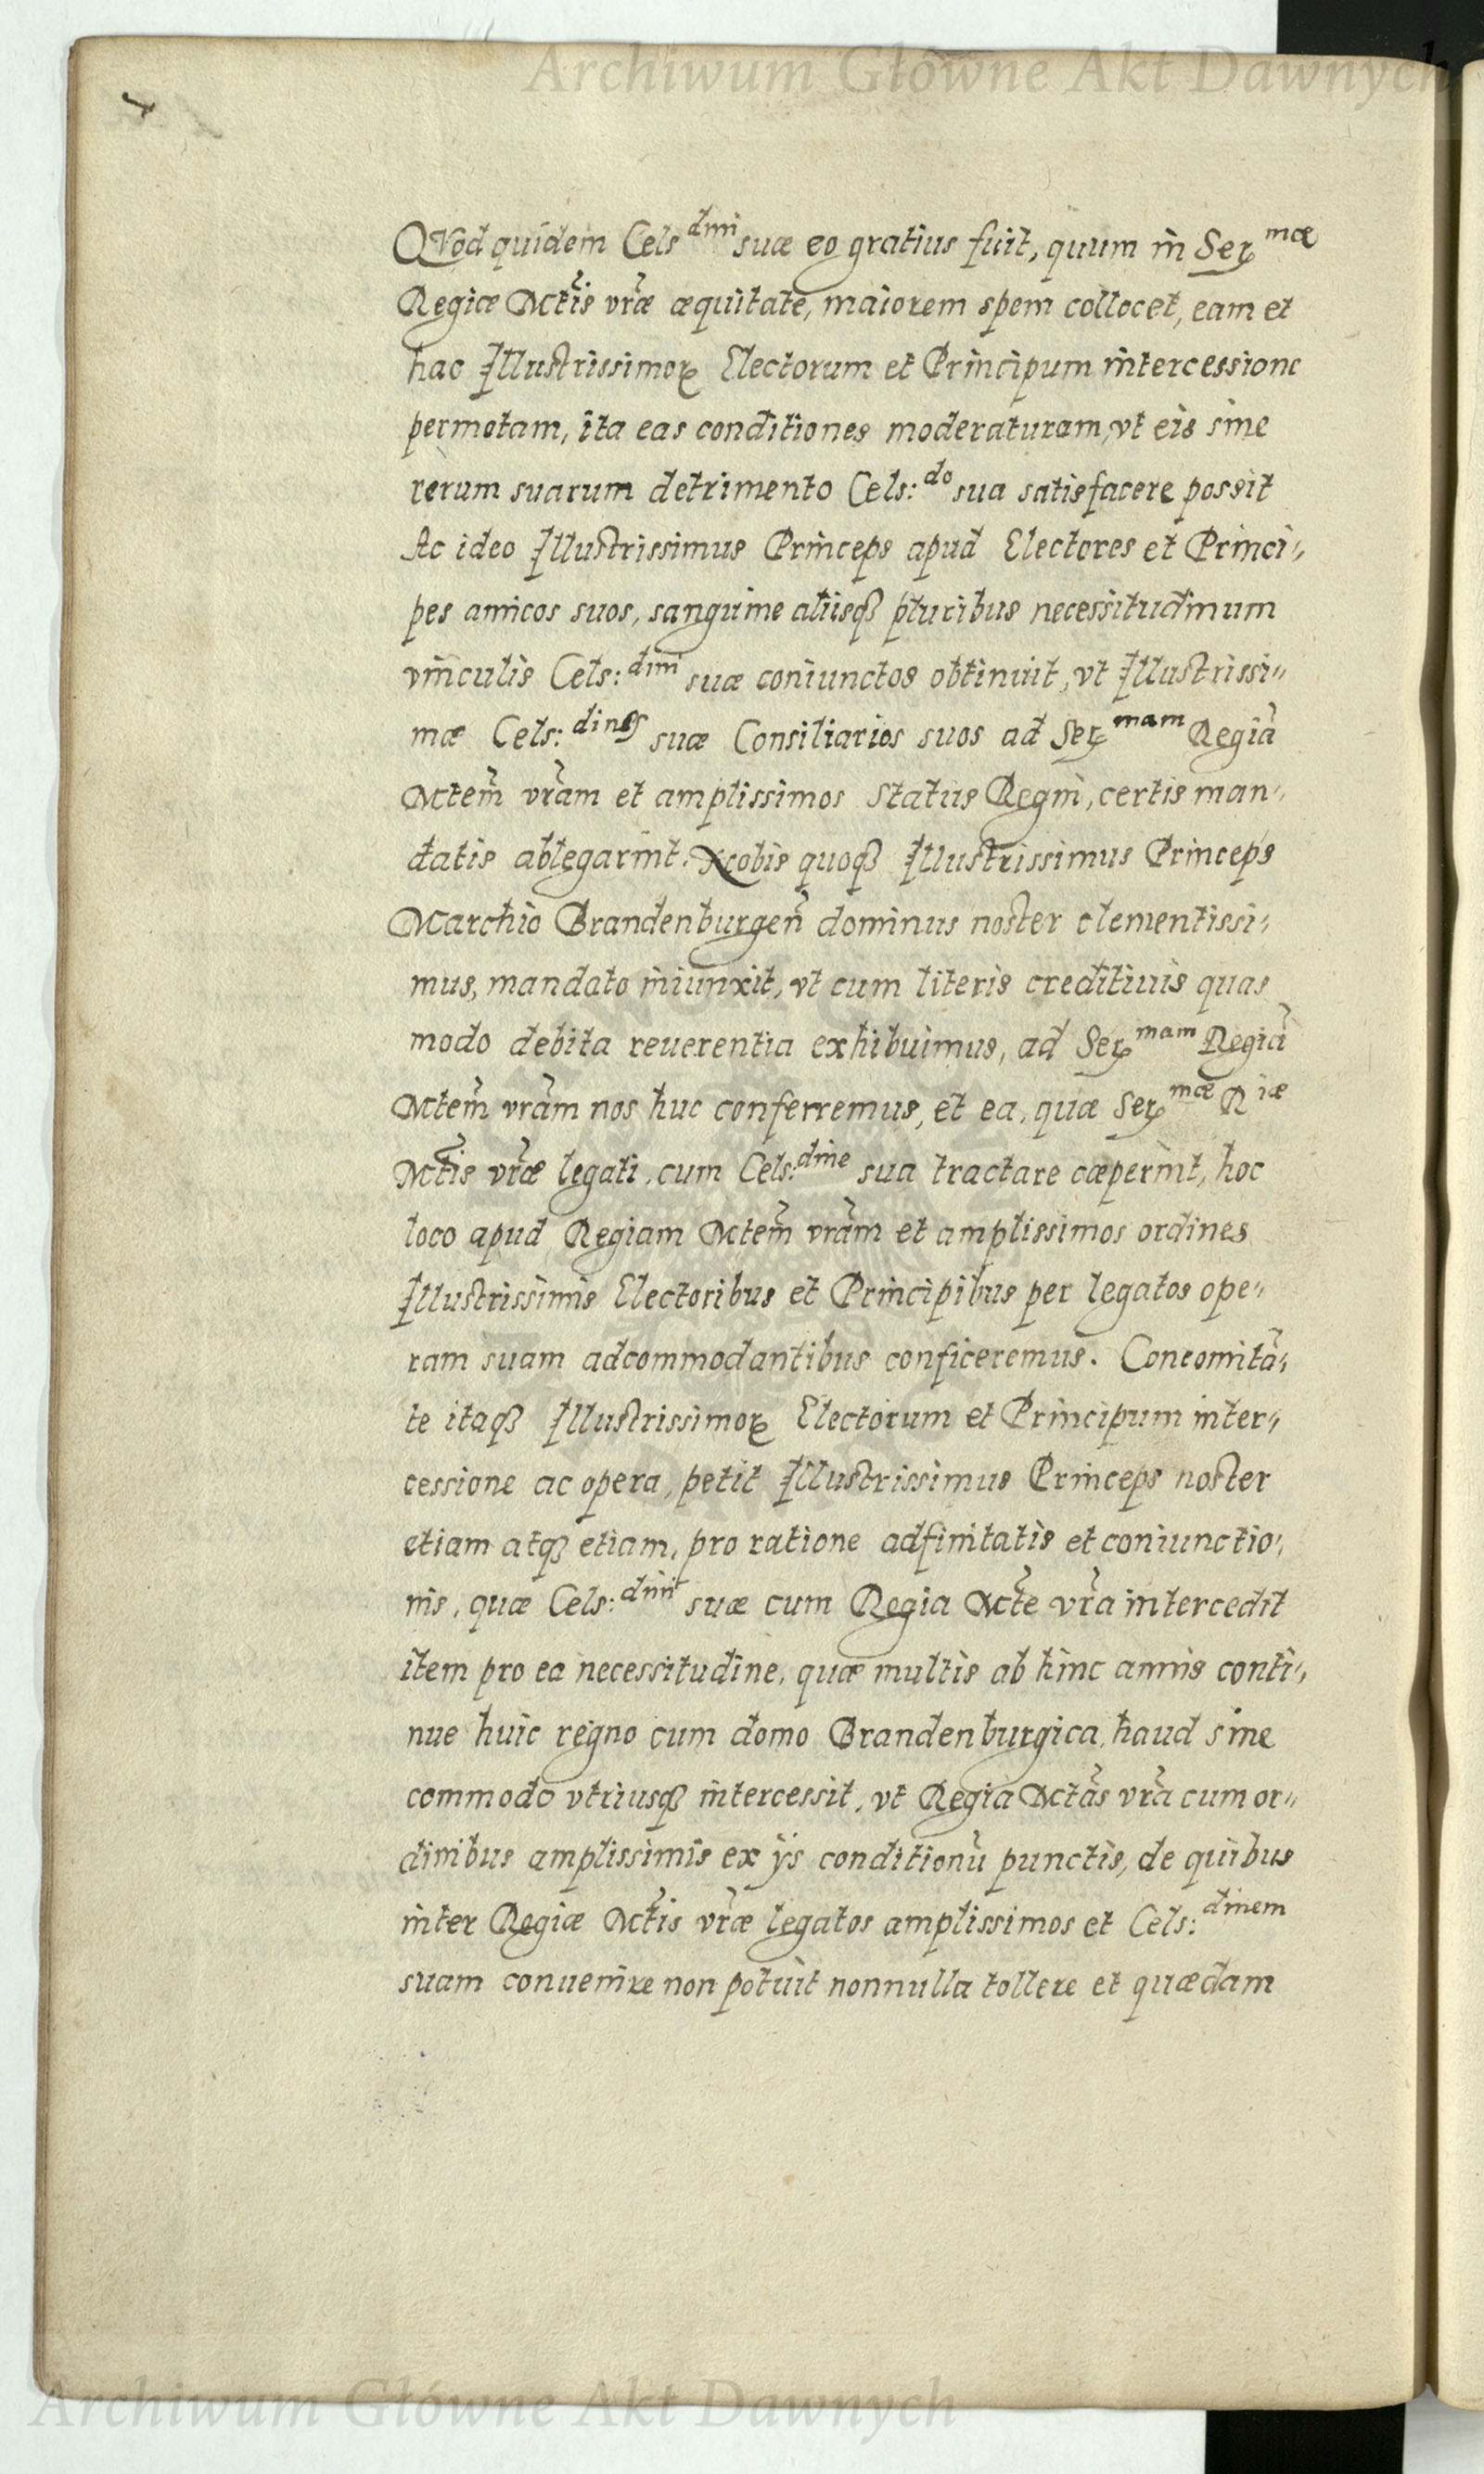 Archiwum Główne Akt Dawnych
QVod quidem Cels dini suæ eo gratius fuit, quum in Ser mæ
Regiæ Mctis vræ æquitate, maiorem spem collocet, eam et
hac Illustrissimorꝝ Electorum et Principum intercessione
permotam, ita eas conditiones moderaturam, vt eis sine
rerum suarum detrimento Cels: do sua satisfacere possit
Ac ideo Illustrissimus Princeps apud Electores et Princi⸗
pes amicos suos, sanguine alijsqꝫ pluribus necessitudinum
vinculis Cels: dini suæ coniunctos obtinuit, vt Illustrissi⸗
mæ Cels: dinis suæ Consiliarios suos ad Ser mam Regiã
Mctem̃ vrãm et amplissimos status Regni, certis man⸗
datis ablegarint. Nobis quoqꝫ Illustrissimus Princeps
Marchio Brandenburgeñ dominus noster clementissi⸗
mus, mandato iniunxit, vt cum literis creditiuis quas
modo debita reuerentia exhibuimus, ad Ser mam Regiã
Mctem̃ vrãm nos huc conferremus, et ea, quæ Ser mæ R iæ
Mctis vræ legati, cum Cels: dine sua tractare cæperint, hoc
loco apud Regiam Mctem̃ vrãm et amplissimos ordines
Illustrissimis Electoribus et Principibus per legatos ope⸗
ram suam adcommodantibus conficeremus. Concomitã⸗
te itaqꝫ Illustrissimorꝝ Electorum et Principum inter⸗
cessione ac opera, petit Illustrissimus Princeps noster
etiam atqꝫ etiam, pro ratione adfinitatis et coniunctio⸗
nis, quæ Cels: dini suæ cum Regia Mcte vrã intercedit
item pro ea necessitudine, quæ multis ab hinc annis conti⸗
nue huic regno cum domo Brandenburgica, haud sine
commodo vtriusqꝫ intercessit, vt Regia Mctãs vrã cum or⸗
dinibus amplissimis ex ijs conditionũ punctis, de quibus
inter Regiæ Mctis vræ legatos amplissimos et Cels: dinem
suam conuenire non potuit nonnulla tollere et quædam
Archiwum Główne Akt Dawnych